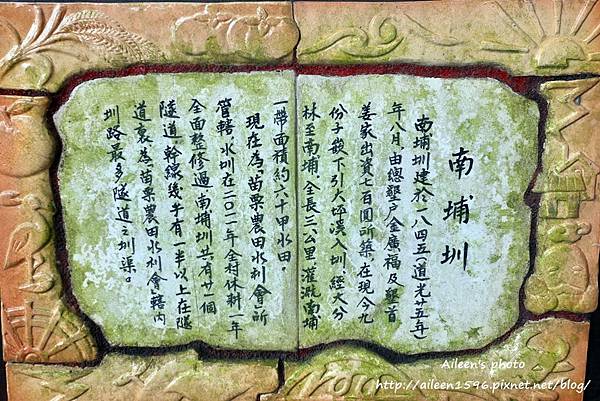 南埔圳
南埔圳建於一八四五(道光廿五年)
年八月由總墾戶金廣福及墾首
姜家出資七百圓所築,在現今九
份子崁下引大坪溪入圳,經大分
林至南埔,全長三公里,灌溉南埔
一帶面積約六十甲水田。
現在為「苗栗農田水利會」所
管轄,水圳在二〇一一年全村休耕一年
全面整修過,南埔圳共有廿一個
隧道,幹線幾乎有一半以上在隧
道裏,為苗栗農田水利會轄內
圳路最多隧道之圳渠。
Aileen's photo
http://aileen1596.pixnet.net/blog/